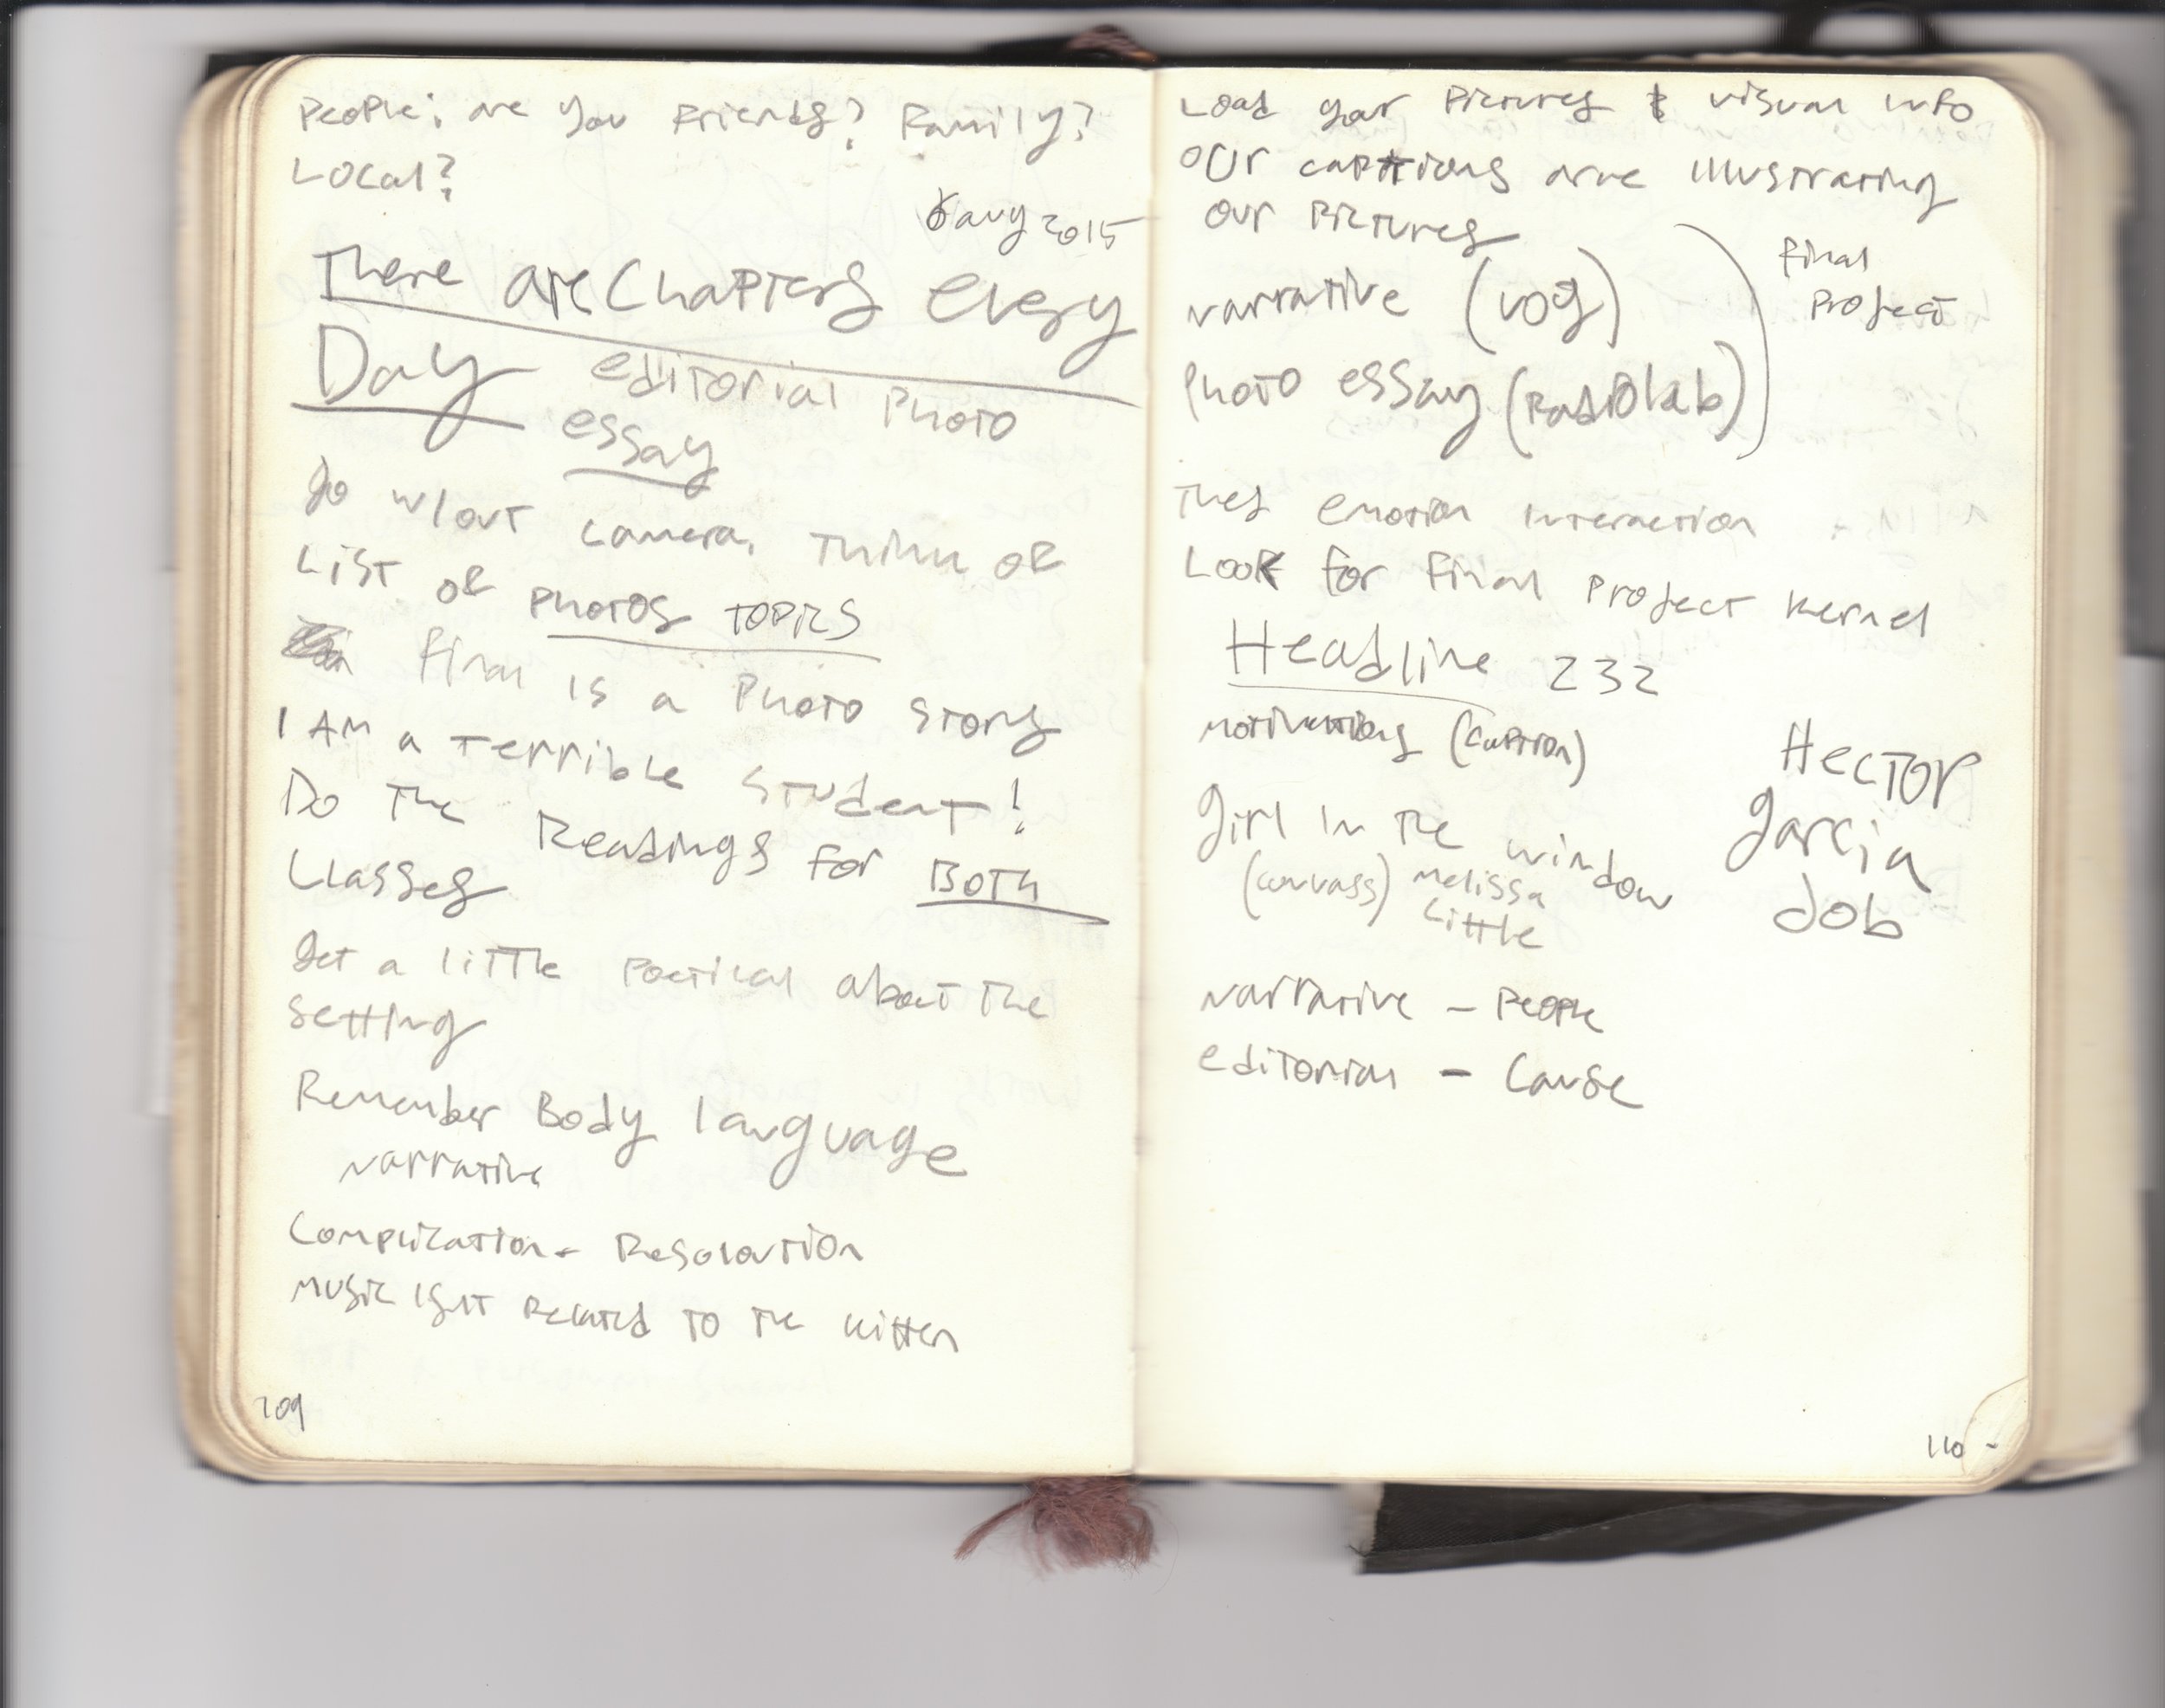 People: are you Friends? Family?
Local?
6 aug 2015
There are Chapters every
Day editorial Photo
essay
go w/out camera. Think of
List of photos topics
final is a Photo story
I AM a Terrible Student!
Do The Readings for BOTH
Classes
get a little Poetical about The
setting
Remember Body language
narrative
Complication - Resoloution
music isnt Related to the kitten
109
Load your Pictures & visual info
our captions are illustrating
our Pictures
narrative (vog)
Photo essay (Radiolab)
final
Project
emotion interaction
Look for Final Project Kernel
Headline 232
motivations (caption)
Hector
garcia
dob
girl in the window
(canvass) Melissa
Little
narrative - People
editorial - Cause
110